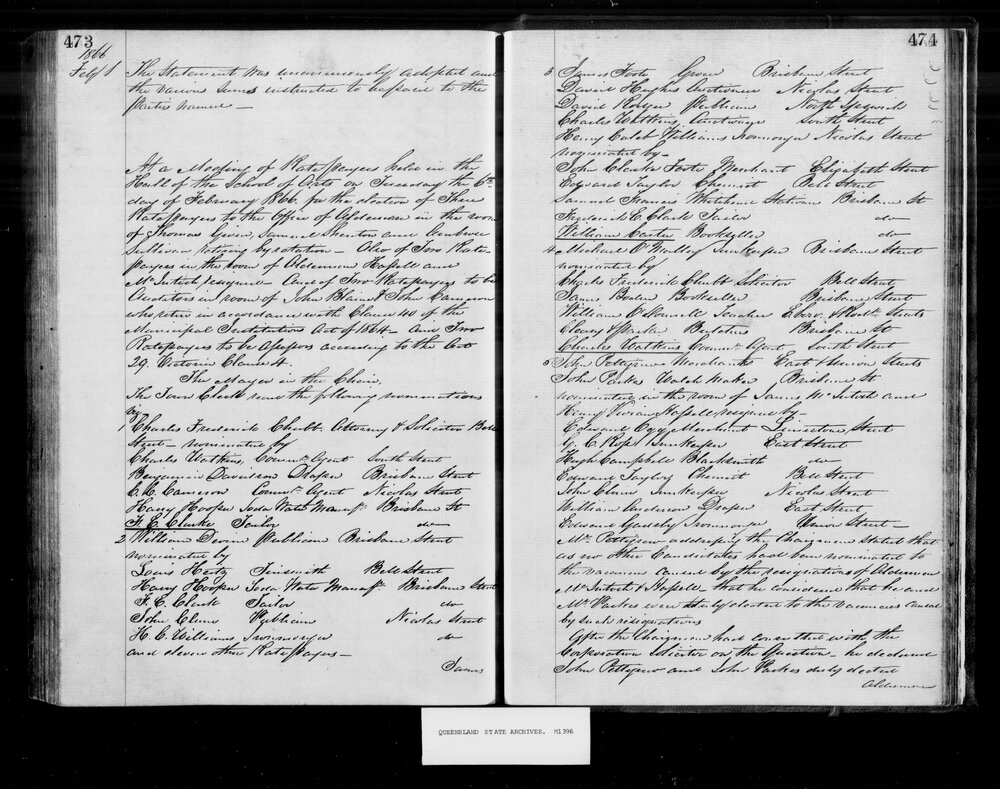 473
1866
Feby 1
The Statement was unanimously adopted and
the various sums instructed to be paid to the
parties named —
At a Meeting of Ratepayers held in the
Hall of the School of Arts on Tuesday the 6th
day of February 1866 for the election of Three
Ratepayers to the Office of Aldermen in the room
of Thomas Given, Samuel Shenton and Andrew
Sullivan retiring by rotation — Also of Two Rate-
payers in the room of Aldermen Hassell and
McIntosh resigned — And of Two Ratepayers to be
Auditors in room of John Blaine & John Cameron
who retire in accordance with Clause 40 of the
Municipal Institutions Act of 1864 — And Two
Ratepayers to be Assessors according to the Act
29 Victoria Clause 4.
The Mayor in the Chair
The Town Clerk read the following nominations
by
1 Charles Frederick Chubb Attorney & Solicitor Bell
Street — nominated by
Charles Watkins, Commn Agent South Street
Benjamin Davidson Draper Brisbane Street
C. C. Cameron Commn Agent Nicolas Street
Harry Hooper Soda Water Manufr Brisbane St
F. E. Clarke Tailor do
2 William Devin Publican Brisbane Street
nominated by
Louis Hertz Tinsmith Bell Street
Harry Hooper Soda Water Manufr Brisbane Street
F. E. Clark Tailor do
John Clune Publican Nicolas Street
H. C. Williams Ironmonger do
and eleven other Ratepayers —
James
474
3 James Foote Grocer Brisbane Street
David Hughes Auctioneer Nicolas Street
David Rodger Publican North Ipswich
Charles Watkins South Street
Henry Caleb Williams Ironmonger Nicolas Street
nominated by —
John Clarke Foote Merchant Elizabeth Street
Edward Taylor Chemist Bell Street
Samuel Francis Whitehead Stationer Brisbane St
Frederick C Clark Tailor do
William Carter Bookseller do
4 Michael O'Malley Innkeeper Brisbane Street
nominated by
Charles Frederick Chubb Solicitor Bell Street
James Bowden Bookseller Brisbane Street
William O'Donnell Teacher Streets
Cleary & Butchers Brisbane St
Charles Watkins Commn Agent South Street
5 John Pettigrew Merchant East & Union Streets
John Parkes Watch Maker Brisbane St
nominated in the room of James McIntosh and
Henry Hassell resigned by —
Edmond Cox Merchant Limestone Street
G. C. Ross Innkeeper East Street
Hugh Campbell Blacksmith do
Edward Taylor Chemist Bell Street
John Clune Innkeeper Nicolas Street
William Anderson Draper East Street
Edward Ironmonger Union Street —
Mr Pettigrew addressing the Chairman stated that
as no other Candidates had been nominated to
the vacancies caused by the resignations of Aldermen
McIntosh & Hassell — that he considered that he and
Mr Parkes were duly elected to the vacancies caused
by such resignations
After the Chairman had consulted with the
Corporation Solicitor on the question — he declared
John Pettigrew and John Parkes duly elected
Aldermen
QUEENSLAND STATE ARCHIVES. M1396